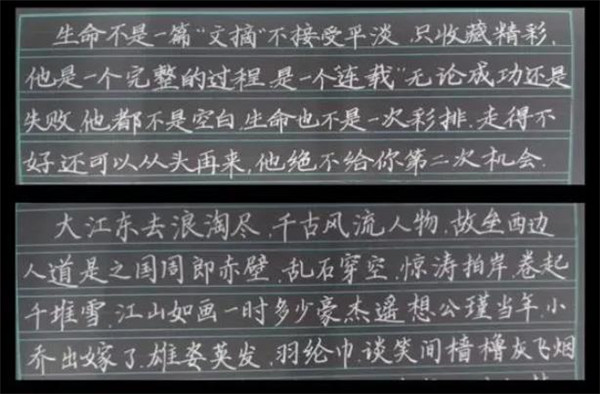 生命不是一篇"文摘"不接受平淡,只收藏精彩,
他是一个完整的过程,是一个连载"无论成功还是
失败,他都不是空白,生命也不是一次彩排.走得不
好还可以从头再来,他绝不给你第二次机会.
大江东去浪淘尽,千古风流人物.故垒西边
人道是之国周郎赤壁.乱石穿空,惊涛拍岸.卷起
千堆雪.江山如画一时多少豪杰遥想公瑾当年.小
乔出嫁了.雄姿英发.羽纶巾.谈笑间樯橹灰飞烟